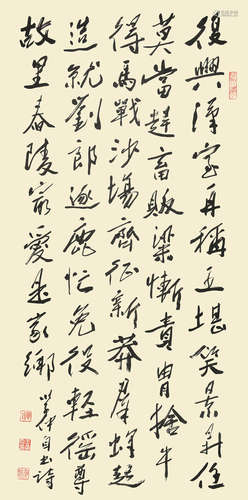 復興漢室再稱王堪笑景升住
莫當趕畜販梁慚責胄捨牛
得馬戰沙場齊征新莽羣雄起
造就劉郎逐鹿忙免役輕徭尊
故里舂陵最愛是家鄉
自書詩